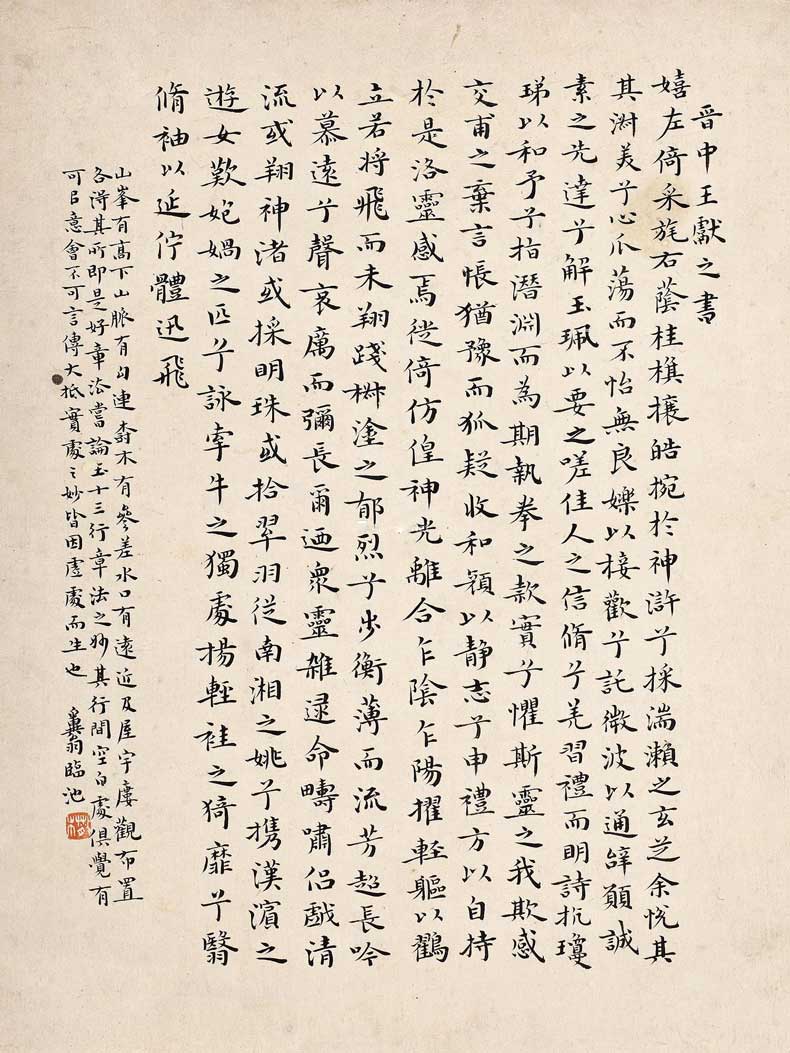 晋中王獻之書
嬉左倚采旄右蔭桂旗攘皓捥於神滸兮採湍瀨之玄芝余悅其
其淑美兮心爪蕩而不怡無良媒以椄歡兮託微波以通辞願誠
素之先達兮解玉珮以要之嗟佳人之信脩兮羌習禮而明詩抗瓊
珶以和予兮指潛淵而為期執拳之款實兮懼斯靈之我欺感
交甫之棄言悵猶豫而狐疑收和顏以静志兮申禮方以自持
於是洛靈感焉徙倚仿偟神光離合乍陰乍陽擢輕軀以鸖
立若將飛而未翔踐椒塗之郁烈兮步衡薄而流芳超長吟
以慕遠兮聲哀厲而彌長爾迺衆靈雜遝命疇嘯侣戲清
流或翔神渚或採明珠或拾翠羽從南湘之姚兮携漢濱之
遊女歎㚿媧之匹兮詠牽牛之獨處揚輕袿之猗靡兮翳
脩袖以延佇體迅飛
山峯有髙下山脈有勾連樹木有參差水口有遠近及屋宇廔觀布置
各得其所即是好章法嘗論玉十三行章法之妙其行間空白處俱覺有
可㠯意會不可言傳大抵實處之妙皆因虛處而生也
翁臨池